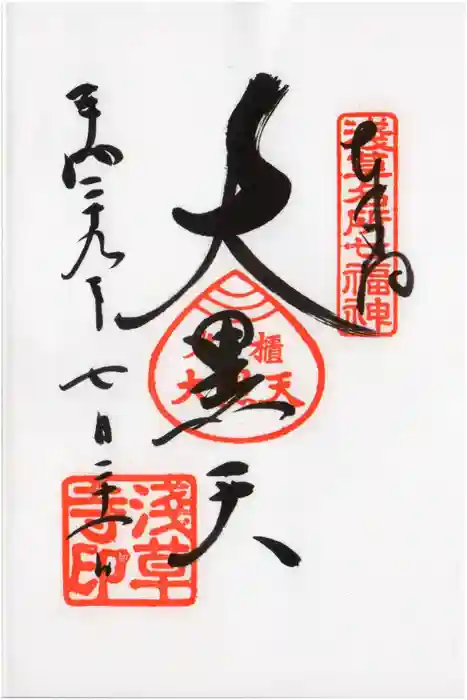 淺草名所七福神
奉拝
大黒天
米櫃
大黒天
平成二十九年
七月二十一日
淺草
寺印